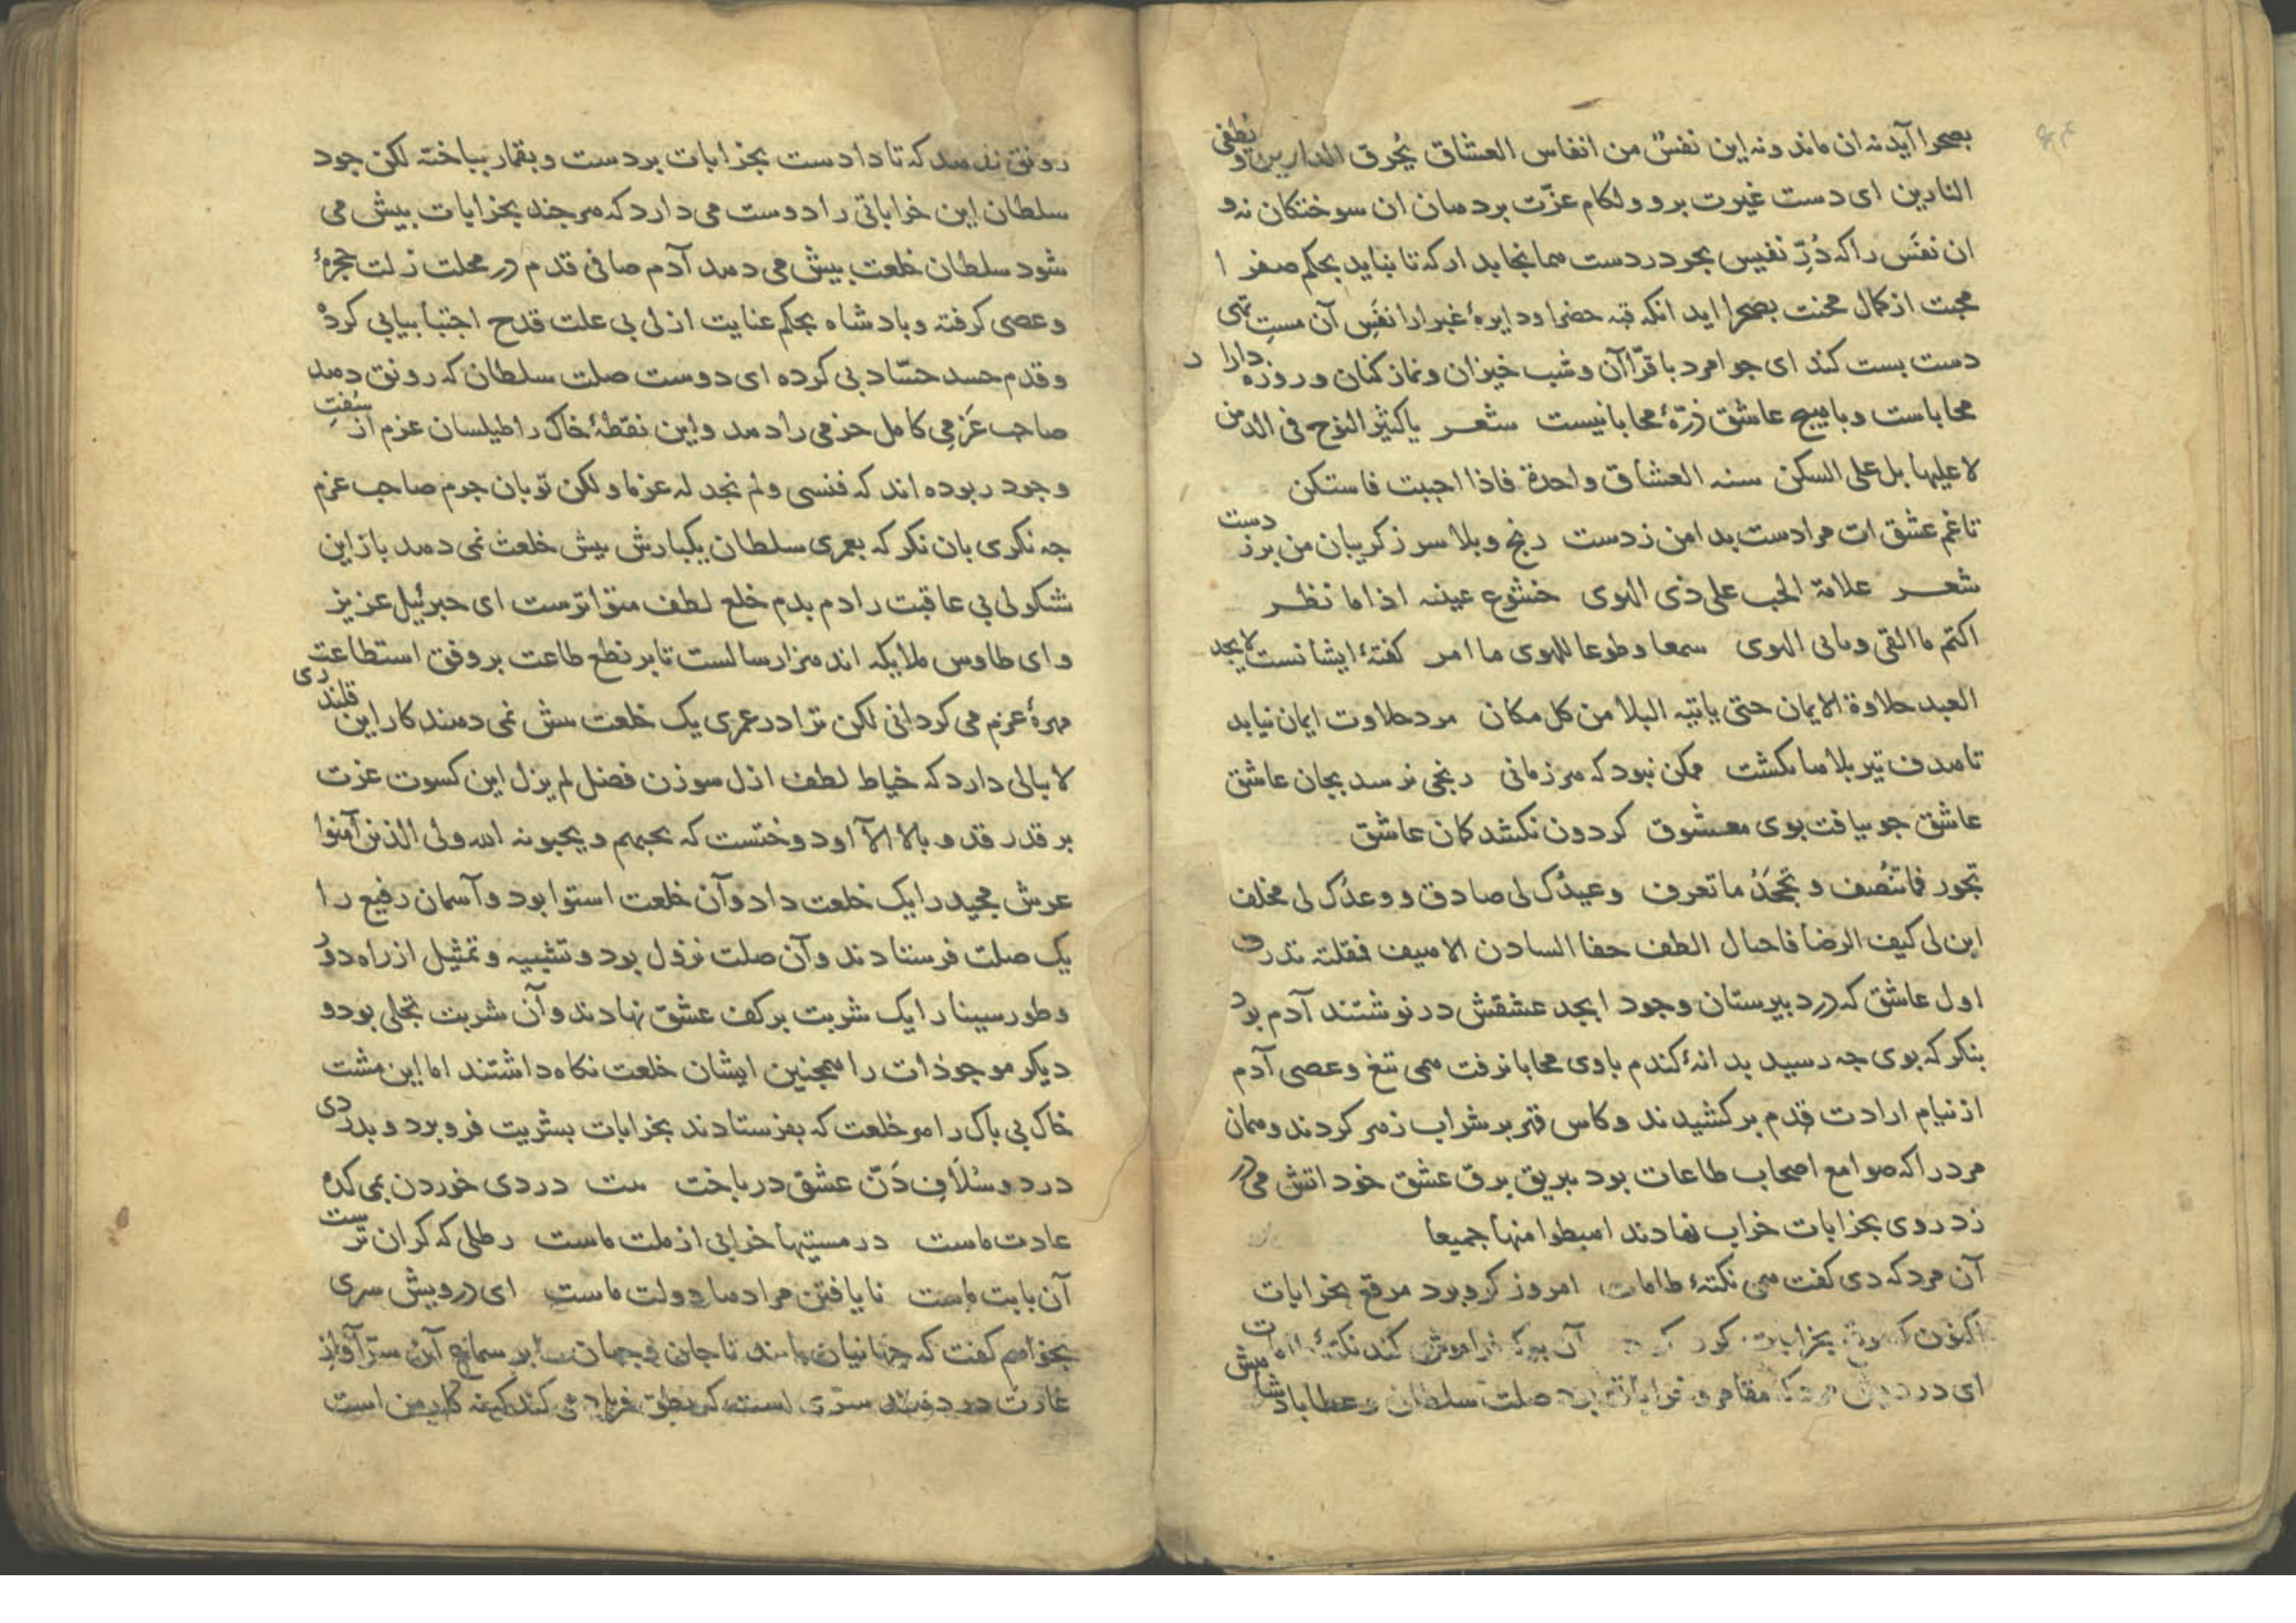 بصحرا آید نه ان ماند و نه این نفسٌ من انفاس العشاق یُحرق الدارین و یُطفی
النارین ای دست غیرت برو و لکام عزّت بر دهان ان سوختکان نه و
ان نفَس را که دُرِّ نفیس بحر دردست هما نجا بدار که تا نباید بحکم صفرا
محبت از کمال محنت بصحرا اید انکه قبه خضرا و دایرهٔ غبرا را نفَسِ آن مستِ تهی
دست بست کند ای جوامرد با قرّاآن و شب خیزان و نماز کنان و روزه دارا
محاباست و با هیچ عاشق ذرّهٔ محابا نیست شعر یا کثیر النوح فی الدمن
لا علیها بل علی السکن سنه العشاق واحدة فاذا احببت فاستکن
تا غم عشق ات مرا دست بدامن زدست رنج و بلا سر ز کریبان من بر زدست
شعر علامة الحب علی ذی الهوی خشوع عینه اذا ما نظر
اکتم ما القی و مابی الهوی سمعا و طوعا للهوی ما امر کفتهٔ ایشانست لا یجد
العبد حلاوة الایمان حتی یاتیه البلا من کل مکان مرد حلاوت ایمان نیابد
تا هدف تیر بلاها نکشت ممکن نبود که هر زمانی رنجی نرسد بجان عاشق
عاشق جو بیافت بوی معشوق کردون نکشد کمان عاشق
تجور فما تنُصف و تجحَدُ ما تعرف وعیدُک لی صادق و وعدُک لی مخلف
این لی کیف الرضا فاحبال الطف حفا السادن الاهیف فقلته تدرف
اول عاشق که در دبیرستان وجود ابجد عشقش در نوشتند آدم بود
بنکر که بوی جه رسید بدانهٔ کندم باوی محابا نرفت همی تنغ و عصی آدم
از نیام ارادت قدم بر کشیدند و کاس قهر بر شراب زهر کردند و همان
مرد را که صوامع اصحاب طاعات بود ببریق برق عشق خود اتش می در
زد روی بخرابات خراب نهادند اهبطوا منها جمیعا
آن مرد که دی کفت همی نکتهٔ طامات امروز کرو برد مرقع بخرابات
اکنون که بخرابات کرو آن به که فراموش کند نکتهٔ
ای درویش مرد که مقامر و خراباتی بود صلت سلطان و عطا
رونق ندهد که تا داد ست بخرابات بردست و بقمار بباخته لکن جود
سلطان این خراباتی را دوست می دارد که هر جند بخرابات بیش می
شود سلطان خلعت بیش می دهد آدم صافی قدم در محلت زلت حجرهٔ
و عصی کرفته و بادشاه بحکم عنایت ازلی بی علت قدح اجتبا بیابی کرد
و قدم حسد حسّاد بی کرده ای دوست صلت سلطان که رونق دهد
صاحب عَزمِی کامل حزمی را دهد و این نقطهٔ خاک را طیلسان عزم از سُفتِ
وجود ربوده اند که فنسی و لم نجد له عزما و لکن تو بان جرم صاحب عزم
جه نکری بان نکر که بعمری سلطان یکبارش بیش خلعت نمی دهد باز این
شکولی بی عاقبت را دم بدم خلع لطف متواترست ای جبرئیل عزیز
و ای طاوس ملایکه اند هزار سالست تا بر نطع طاعت بر وفق استطاعت
مهرهٔ عزم می کردانی لکن ترا در عمری یک خلعت بیش نمی دهند کار این قلندری
لا بالی دارد که خیاط لطف ازل سوزن فضل لم یزل این کسوت عزت
بر قدر قد و بالا الآ او دوختست که یحبهم و یحبونه الله ولی الذین آمنوا
عرش مجید را یک خلعت داد و آن خلعت استوا بود و آسمان رفیع را
یک صلت فرستادند و آن صلت نزول بود و تشبیه و تمثیل از راه دور
و طور سینا را یک شربت بر کف عشق نهادند و آن شربت تجلی بود و
دیکر موجوذات را همجنین ایشان خلعت نکاه داشتند اما این مشت
خاک بی باک را هر خلعت که بفرستادند بخرابات بشریت فرو برد و بدردی
درد و سُلَافِ دَنّ عشق درباخت بیت دردی خوردن بمی کده
عادت ماست در مستیها خرابی از ملت ماست رطلی که کران ترست
آن بابت ماست نا یافتن مرادها دولت ماست ای درویش سری
بخواهم کفت که جهانیان تا جان و جهان را بر سماع آن سرّ آواز
غارت در دهند سرّی است که نطق فریاد می کند که نه کار من است